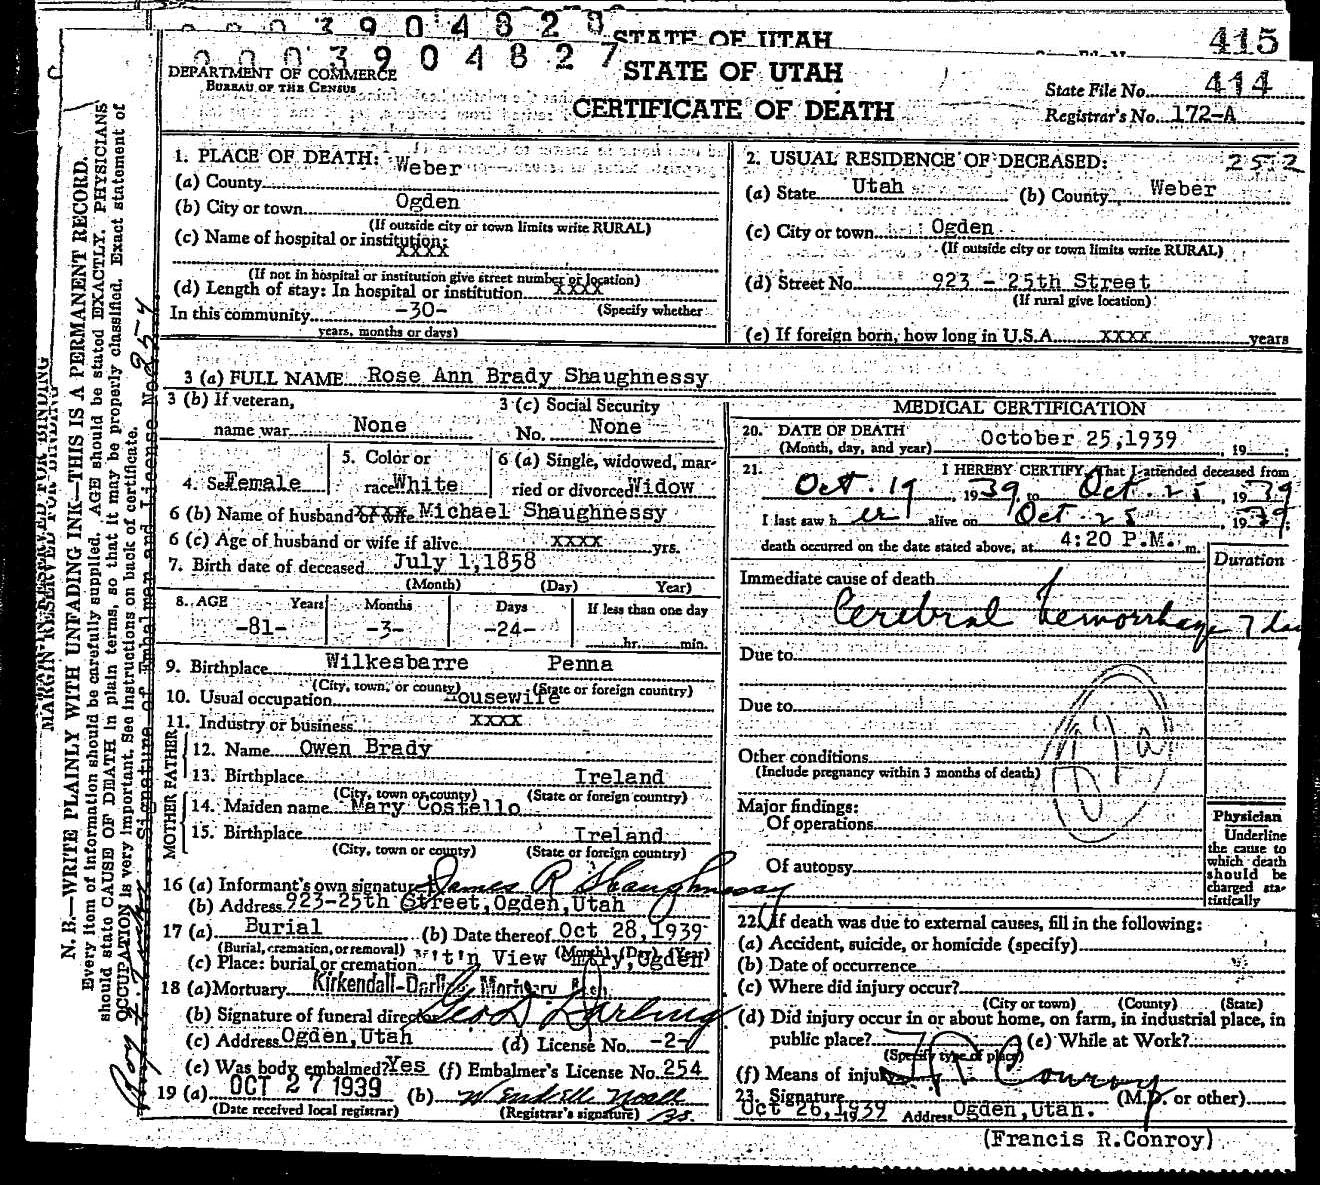 0003904828
STATE OF UTAH
415
0003904827
DEPARTMENT OF COMMERCE
BUREAU OF THE CENSUS
STATE OF UTAH
CERTIFICATE OF DEATH
State File No. 414
Registrar's No. 172-A
MARGIN RESERVED FOR BINDING
N. B.—WRITE PLAINLY WITH UNFADING INK—THIS IS A PERMANENT RECORD.
Every item of information should be carefully supplied. AGE should be stated EXACTLY. PHYSICIANS
should state CAUSE OF DEATH in plain terms, so that it may be properly classified. Exact statement of
OCCUPATION is very important. See instructions on back of certificate.
Signature of Embalmer and License No. 254
1. PLACE OF DEATH:
(a) County Weber
(b) City or town Ogden
(If outside city or town limits write RURAL)
(c) Name of hospital or institution:
xxxx
(If not in hospital or institution give street number or location)
(d) Length of stay: In hospital or institution xxxx
In this community -30- (Specify whether
years, months or days)
2. USUAL RESIDENCE OF DECEASED: 252
(a) State Utah (b) County Weber
(c) City or town Ogden
(If outside city or town limits write RURAL)
(d) Street No. 923 - 25th Street
(If rural give location)
(e) If foreign born, how long in U.S.A. xxxx years
3 (a) FULL NAME Rose Ann Brady Shaughnessy
3 (b) If veteran,
name war None
3 (c) Social Security
No. None
4. Sex Female
5. Color or
race White
6 (a) Single, widowed, mar-
ried or divorced Widow
6 (b) Name of husband or wife Michael Shaughnessy
6 (c) Age of husband or wife if alive xxxx yrs.
7. Birth date of deceased July 1,1858
(Month) (Day) Year)
8. AGE Years Months Days If less than one day
-81- -3- -24- hr. min.
9. Birthplace Wilkesbarre Penna
(City, town, or county) (State or foreign country)
10. Usual occupation Housewife
11. Industry or business xxxx
FATHER
12. Name Owen Brady
13. Birthplace Ireland
(City, town or county) (State or foreign country)
MOTHER
14. Maiden name Mary Costello
15. Birthplace Ireland
(City, town or county) (State or foreign country)
16 (a) Informant's own signature James R Shaughnessy
(b) Address 923-25th Street,Ogden,Utah
17 (a) Burial (b) Date thereof Oct 28,1939
(Burial, cremation, or removal) (Month) (Day) (Year)
(c) Place: burial or cremation M't'n View Cmtry,Ogden
18 (a) Mortuary Kirkendall-Darling Mortuary
(b) Signature of funeral director Geo D. Darling
(c) Address Ogden,Utah (d) License No. -2-
(e) Was body embalmed? Yes (f) Embalmer's License No. 254
19 (a) OCT 27 1939 (b) Wendell Noall
(Date received local registrar) (Registrar's signature)
MEDICAL CERTIFICATION
20. DATE OF DEATH
(Month, day, and year) October 25,1939 , 19 ;
21. I HEREBY CERTIFY, That I attended deceased from
Oct. 19 , 1939 to Oct. 25 , 1939
I last saw h er alive on Oct 25 , 1939;
death occurred on the date stated above, at 4:20 P.M. m.
Duration
Immediate cause of death
Cerebral hemorrhage 7 da
Due to
Due to
Other conditions
(Include pregnancy within 3 months of death)
Major findings:
Of operations
Of autopsy
Physician
Underline
the cause to
which death
should be
charged sta-
tistically
22. If death was due to external causes, fill in the following:
(a) Accident, suicide, or homicide (specify)
(b) Date of occurrence
(c) Where did injury occur?
(City or town) (County) (State)
(d) Did injury occur in or about home, on farm, in industrial place, in
public place? (e) While at Work?
(Specify type of place)
(f) Means of injury
23. Signature F R Conroy (M.D. or other)
Oct 26,1939 Address Ogden,Utah.
(Francis R.Conroy)